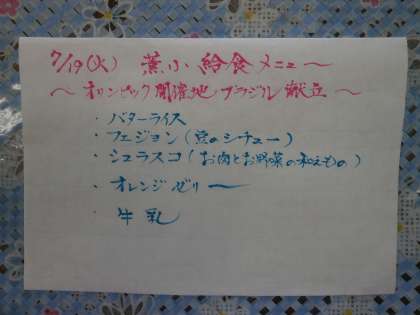 7/19(火) 葉小 給食メニュー〜
〜オリンピック開催地ブラジル献立〜
・バターライス
・フェジョン(豆のシチュー)
・シュラスコ(お肉とお野菜の和えもの)
・オレンジゼリー
・牛乳